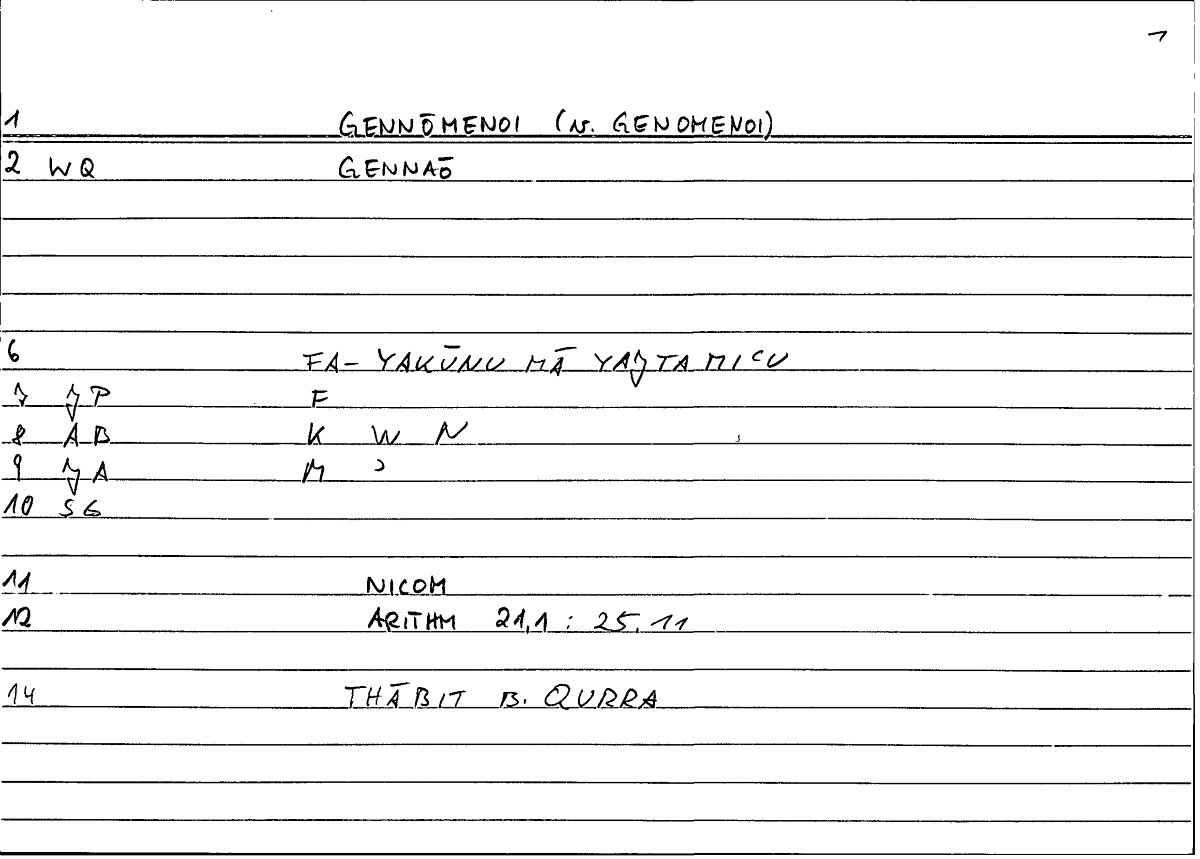 1
1 GENNŌMENOI (v. GENOMENOI)
2 WQ GENNAŌ
6 FA-YAKŪNU MĀ YAǦTAMIʿU
7 ǦP F
8 AB K W N
9 ǦA M ʾ
10 SG
11 NICOM
12 ARITHM 21,1 : 25,11
14 THĀBIT B. QURRA